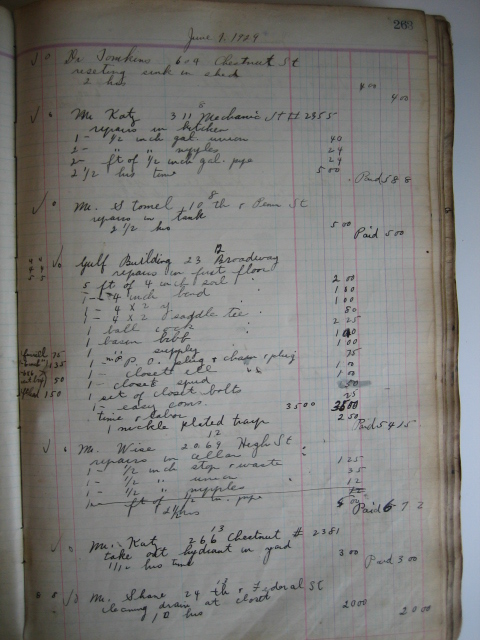 263
June 1, 1929
Dr Tomkins 604 Chestnut St
reseting sink in shed
2 hrs 400
400
8
Mr. Katz 311 Mechanic St # 2955
repairs in kitchen
1 - 1/2 inch gal. union 40
2 - " " nipples 24
2 - ft of 1/2 inch gal. pipe 24
2 1/2 hrs time 500
Paid 588
8
Mr. Stomel 10th & Penn St
repairs in tank
2 1/2 hrs 500
Paid 500
12
Gulf Building 23 Broadway
repairs in first floor
5 ft of 4 inch soil 200
1 - 4 inch bend
1 - 4 x 2 y 100
1 - 4 x 2 saddle tee
1 ball cock 225
1 basin bibb
1 " supply
1 - P.O. plug & chain & plug 75
1 - closets ell
1 - closet spud
1 set of closet bolts
1 - easy
time & labor 3500 3500
1 nickle plated trap 250
Paid 5415
12
Mr. Wise 2069 High St
repairs in cellar
1 - 1/2 inch stop & waste 125
1 - 1/2 " union 35
1 - 1/2 " nipples 12
ft of 1/2 in. pipe
2 1/2 hrs 500
Paid 672
13
Mr. Katz 266 Chestnut # 2381
take out hydrant in yard
hrs time 300
Paid 300
Mr. Shane 24th & Federal St
cleaning drain at closet
10 hrs 2000
2000